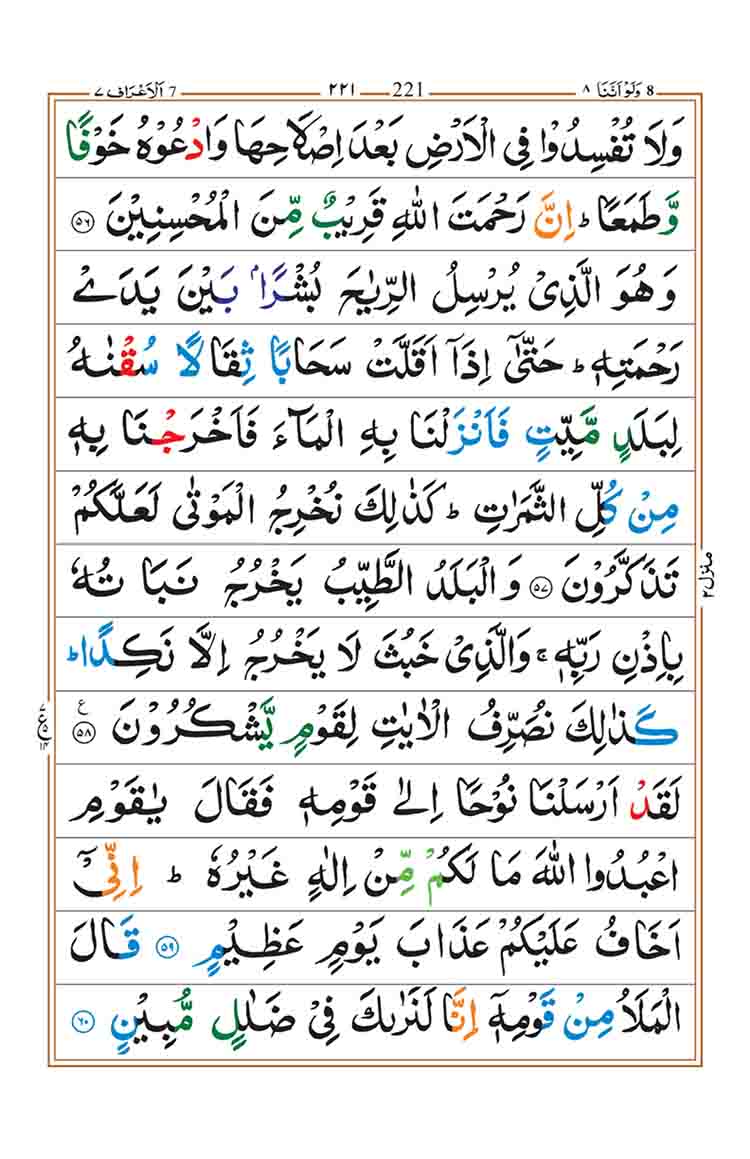 8 وَلَوْ اَنَّنَا ٨ 221 ٢٢١ 7 اَلْاَعْرَاف ٧
وَلَا تُفْسِدُوْا فِى الْاَرْضِ بَعْدَ اِصْلَاحِهَا وَادْعُوْهُ خَوْفًا
وَّطَمَعًا ؕ اِنَّ رَحْمَتَ اللّٰهِ قَرِيْبٌ مِّنَ الْمُحْسِنِيْنَ ﴿٥٦﴾
وَهُوَ الَّذِىْ يُرْسِلُ الرِّيٰحَ بُشْرًۢا بَيْنَ يَدَىْ
رَحْمَتِهٖ ؕ حَتّٰۤى اِذَاۤ اَقَلَّتْ سَحَابًا ثِقَالًا سُقْنٰهُ
لِبَلَدٍ مَّيِّتٍ فَاَنْزَلْنَا بِهِ الْمَآءَ فَاَخْرَجْنَا بِهٖ
مِنْ كُلِّ الثَّمَرٰتِ ؕ كَذٰلِكَ نُخْرِجُ الْمَوْتٰى لَعَلَّكُمْ
تَذَكَّرُوْنَ ﴿٥٧﴾ وَالْبَلَدُ الطَّيِّبُ يَخْرُجُ نَبَاتُهٗ
بِاِذْنِ رَبِّهٖ ۚ وَالَّذِىْ خَبُثَ لَا يَخْرُجُ اِلَّا نَكِدًا ؕ
كَذٰلِكَ نُصَرِّفُ الْاٰيٰتِ لِقَوْمٍ يَّشْكُرُوْنَ ﴿٥٨﴾ ع
لَقَدْ اَرْسَلْنَا نُوْحًا اِلٰى قَوْمِهٖ فَقَالَ يٰقَوْمِ
اعْبُدُوا اللّٰهَ مَا لَكُمْ مِّنْ اِلٰهٍ غَيْرُهٗ ؕ اِنِّىْۤ
اَخَافُ عَلَيْكُمْ عَذَابَ يَوْمٍ عَظِيْمٍ ﴿٥٩﴾ قَالَ
الْمَلَاُ مِنْ قَوْمِهٖۤ اِنَّا لَنَرٰىكَ فِىْ ضَلٰلٍ مُّبِيْنٍ ﴿٦٠﴾
منزل ٢
ع